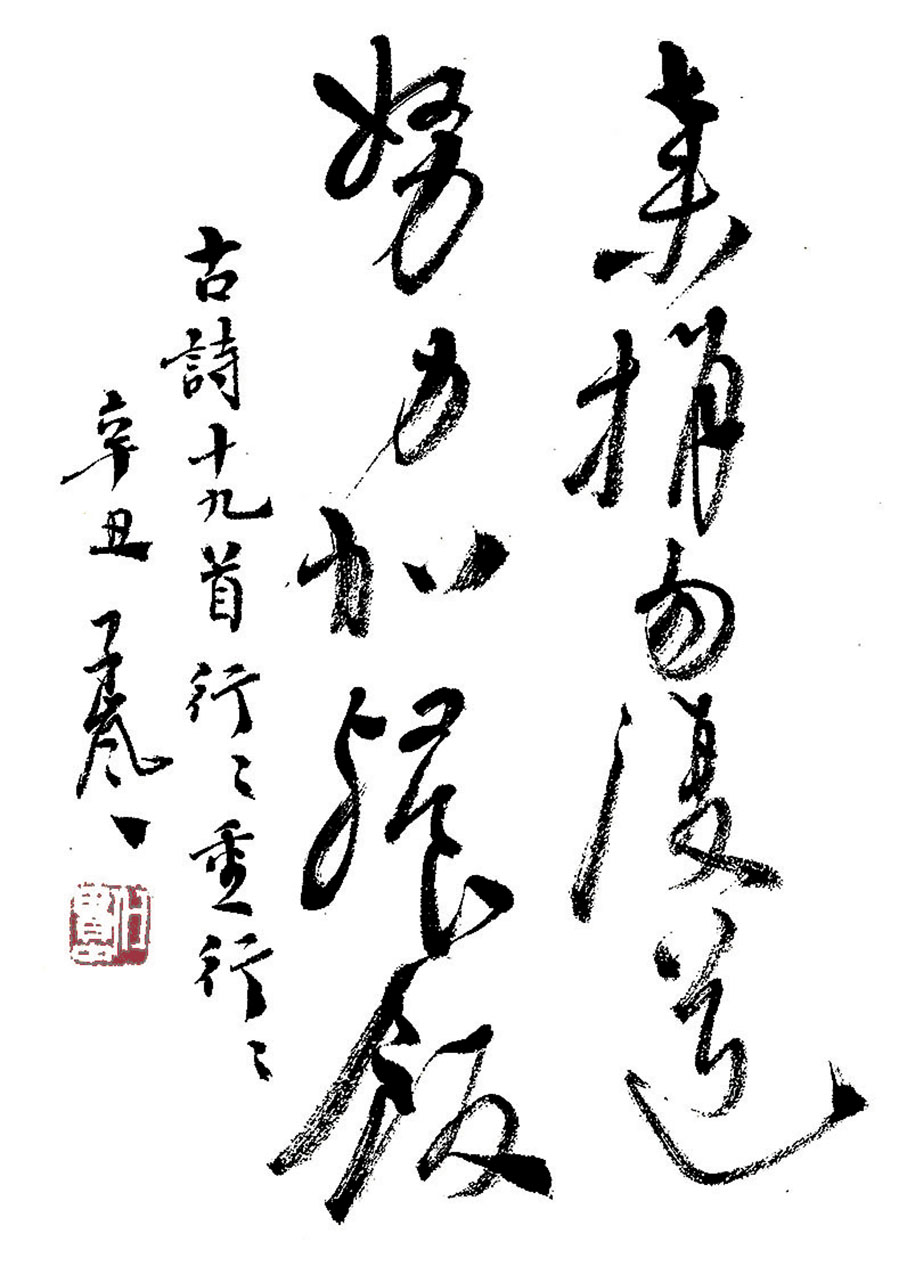 棄捐勿復道
努力加餐飯
古詩十九首行〻重行〻
辛丑